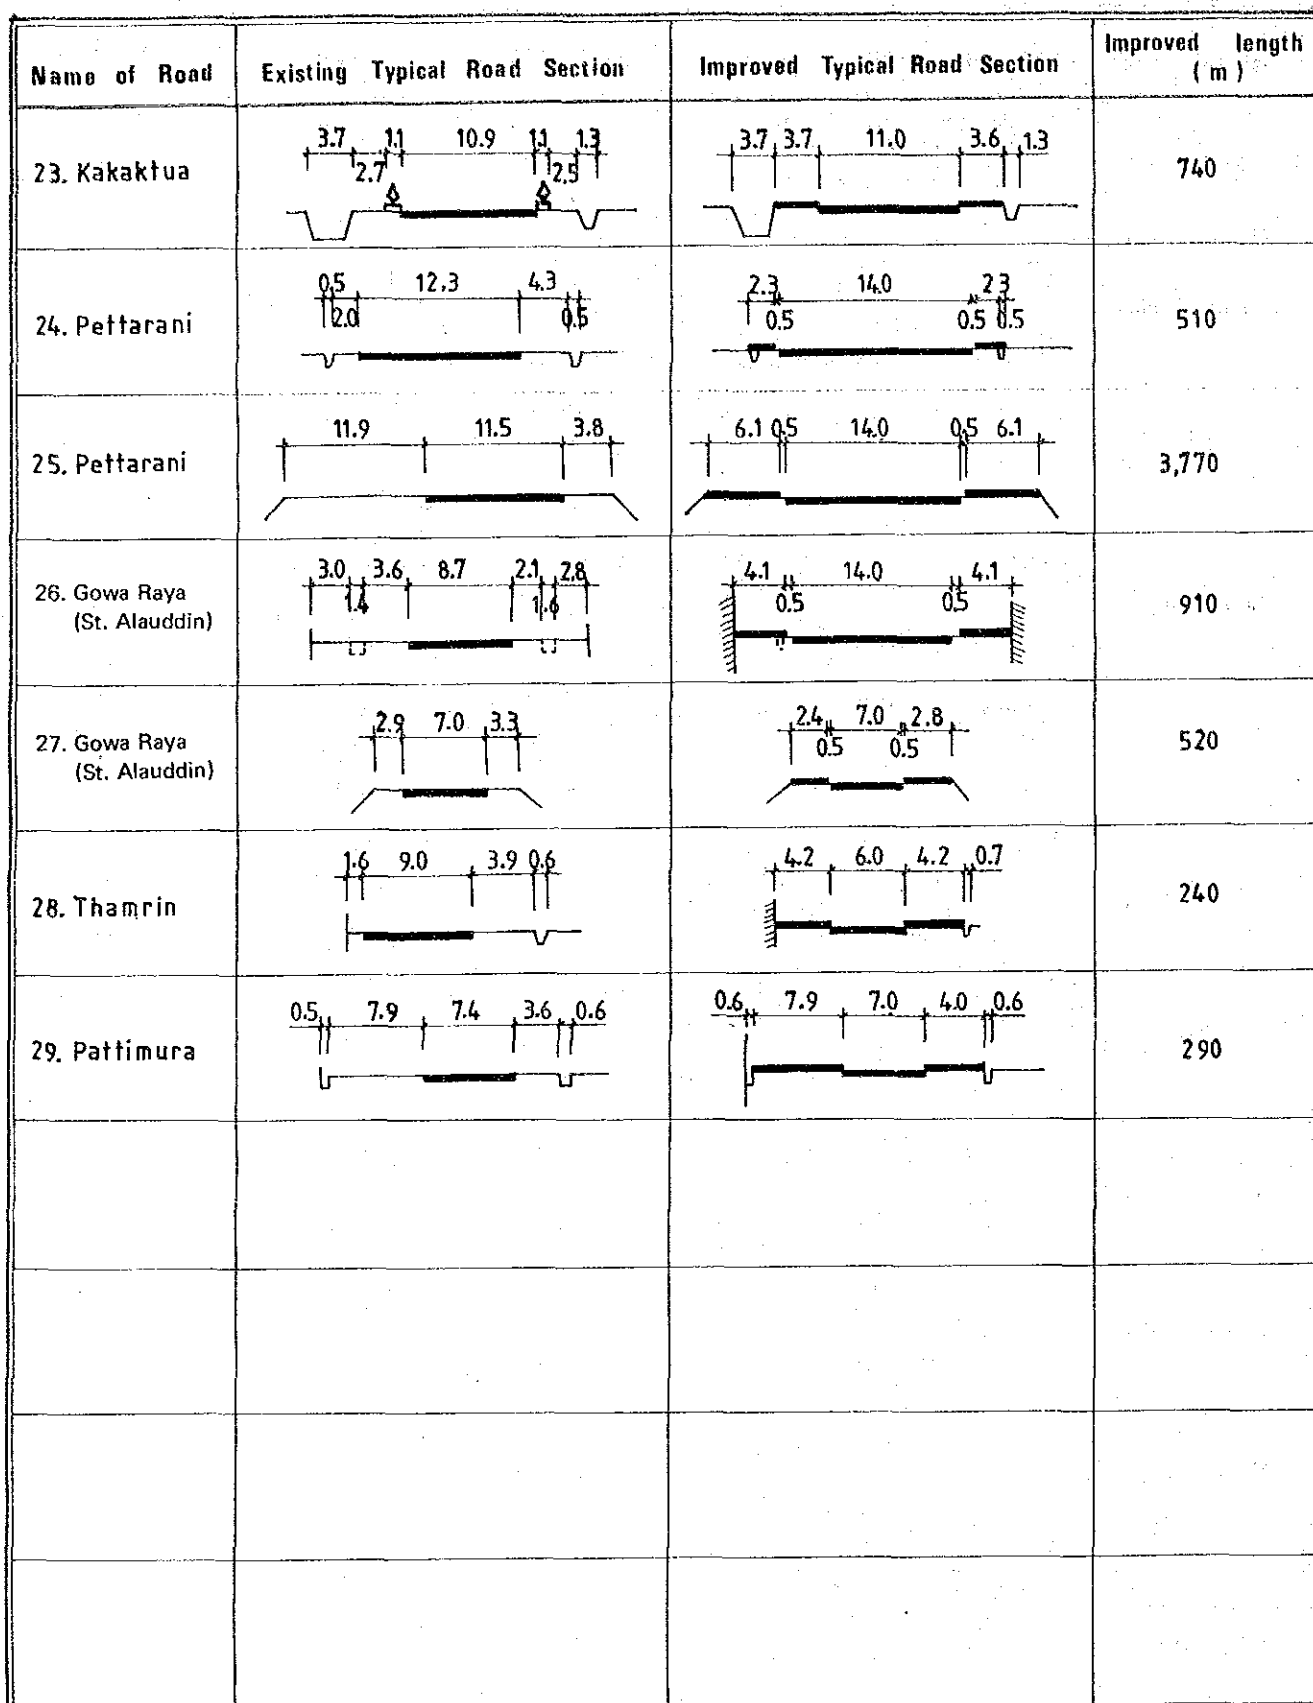 Name of Road Existing Typical Road Section Improved Typical Road Section Improved length (m)
23. Kakaktua
3.7 1.1 10.9 1.1 1.3
2.7 2.5
3.7 3.7 11.0 3.6 1.3
740
24. Pettarani
0.5 12.3 4.3
2.0 0.5
2.3 14.0 2.3
0.5 0.5 0.5
510
25. Pettarani
11.9 11.5 3.8
6.1 0.5 14.0 0.5 6.1
3,770
26. Gowa Raya
(St. Alauddin)
3.0 3.6 8.7 2.1 2.8
1.4 1.6
4.1 14.0 4.1
0.5 0.5
910
27. Gowa Raya
(St. Alauddin)
2.9 7.0 3.3
2.4 7.0 2.8
0.5 0.5
520
28. Thamrin
1.6 9.0 3.9 0.6
4.2 6.0 4.2 0.7
240
29. Pattimura
0.5 7.9 7.4 3.6 0.6
0.6 7.9 7.0 4.0 0.6
290